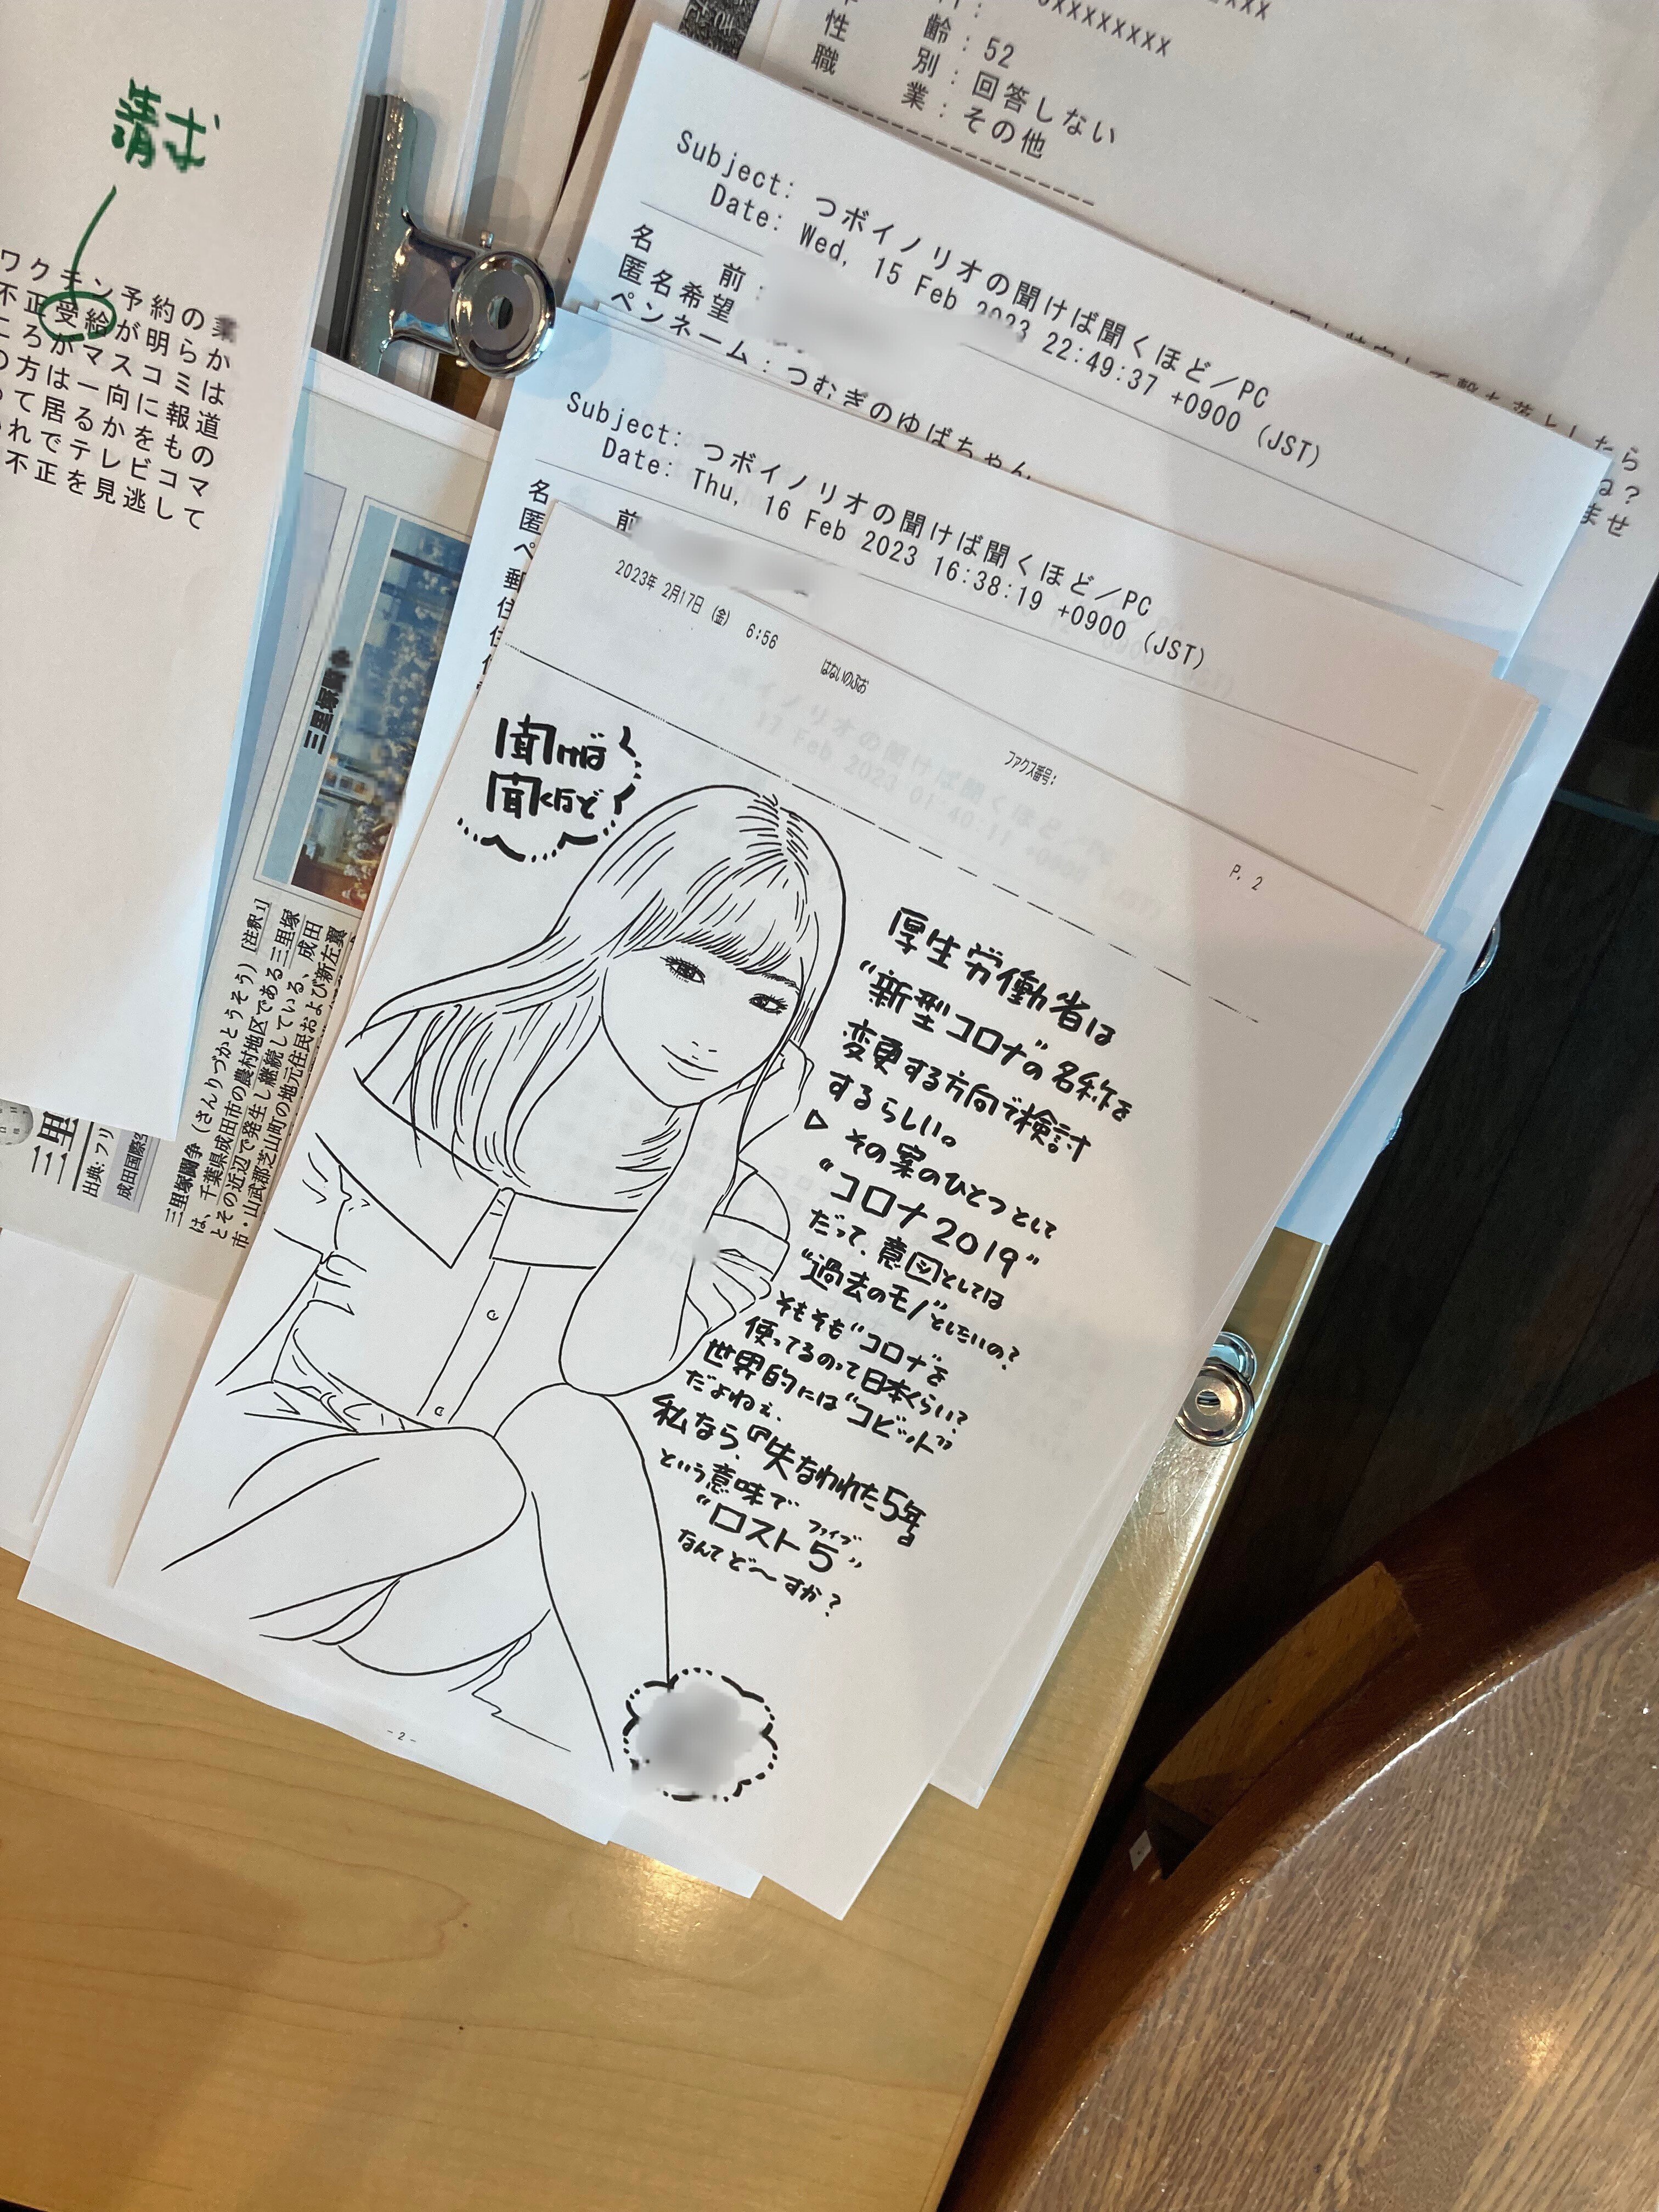 齢：52
性　別：回答しない
職　業：その他
Subject: つボイノリオの聞けば聞くほど／PC
Date: Wed, 15 Feb 2023 22:49:37 +0900 (JST)
名　前：
匿名希望
ペンネーム：つむぎのゆばちゃん
Subject: つボイノリオの聞けば聞くほど／PC
Date: Thu, 16 Feb 2023 16:38:19 +0900 (JST)
名　前
匿
ペ
郵
住
住
2023年 2月17日（金） 6:56
はないのぶお
ファクス番号：
P. 2
聞けば
聞くほど
厚生労働省は
“新型コロナ”の名称を
変更する方向で検討
するらしい。
▷ その案のひとつとして
“コロナ2019”
だって、意図としては
“過去のモノ”としたいの？
そもそも“コロナ”を
使ってるのって日本くらい？
世界的には“コビット”
だよねぇ、
私なら、『失なわれた5年』
という意味で
“ロスト5”
ファイブ
なんてど〜すか？
-2-
請求
ワクチン予約の業
不正受給が明らか
ころがマスコミは
の方は一向に報道
って居るかをもの
れでテレビコマ
不正を見逃して
三里塚闘争
三里
出典: フリ
成田国際空
三里塚闘争（さんりづかとうそう）[注釈 1]
は、千葉県成田市の農村地区である三里塚
とその近辺で発生し継続している、成田
市・山武郡芝山町の地元住民および新左翼